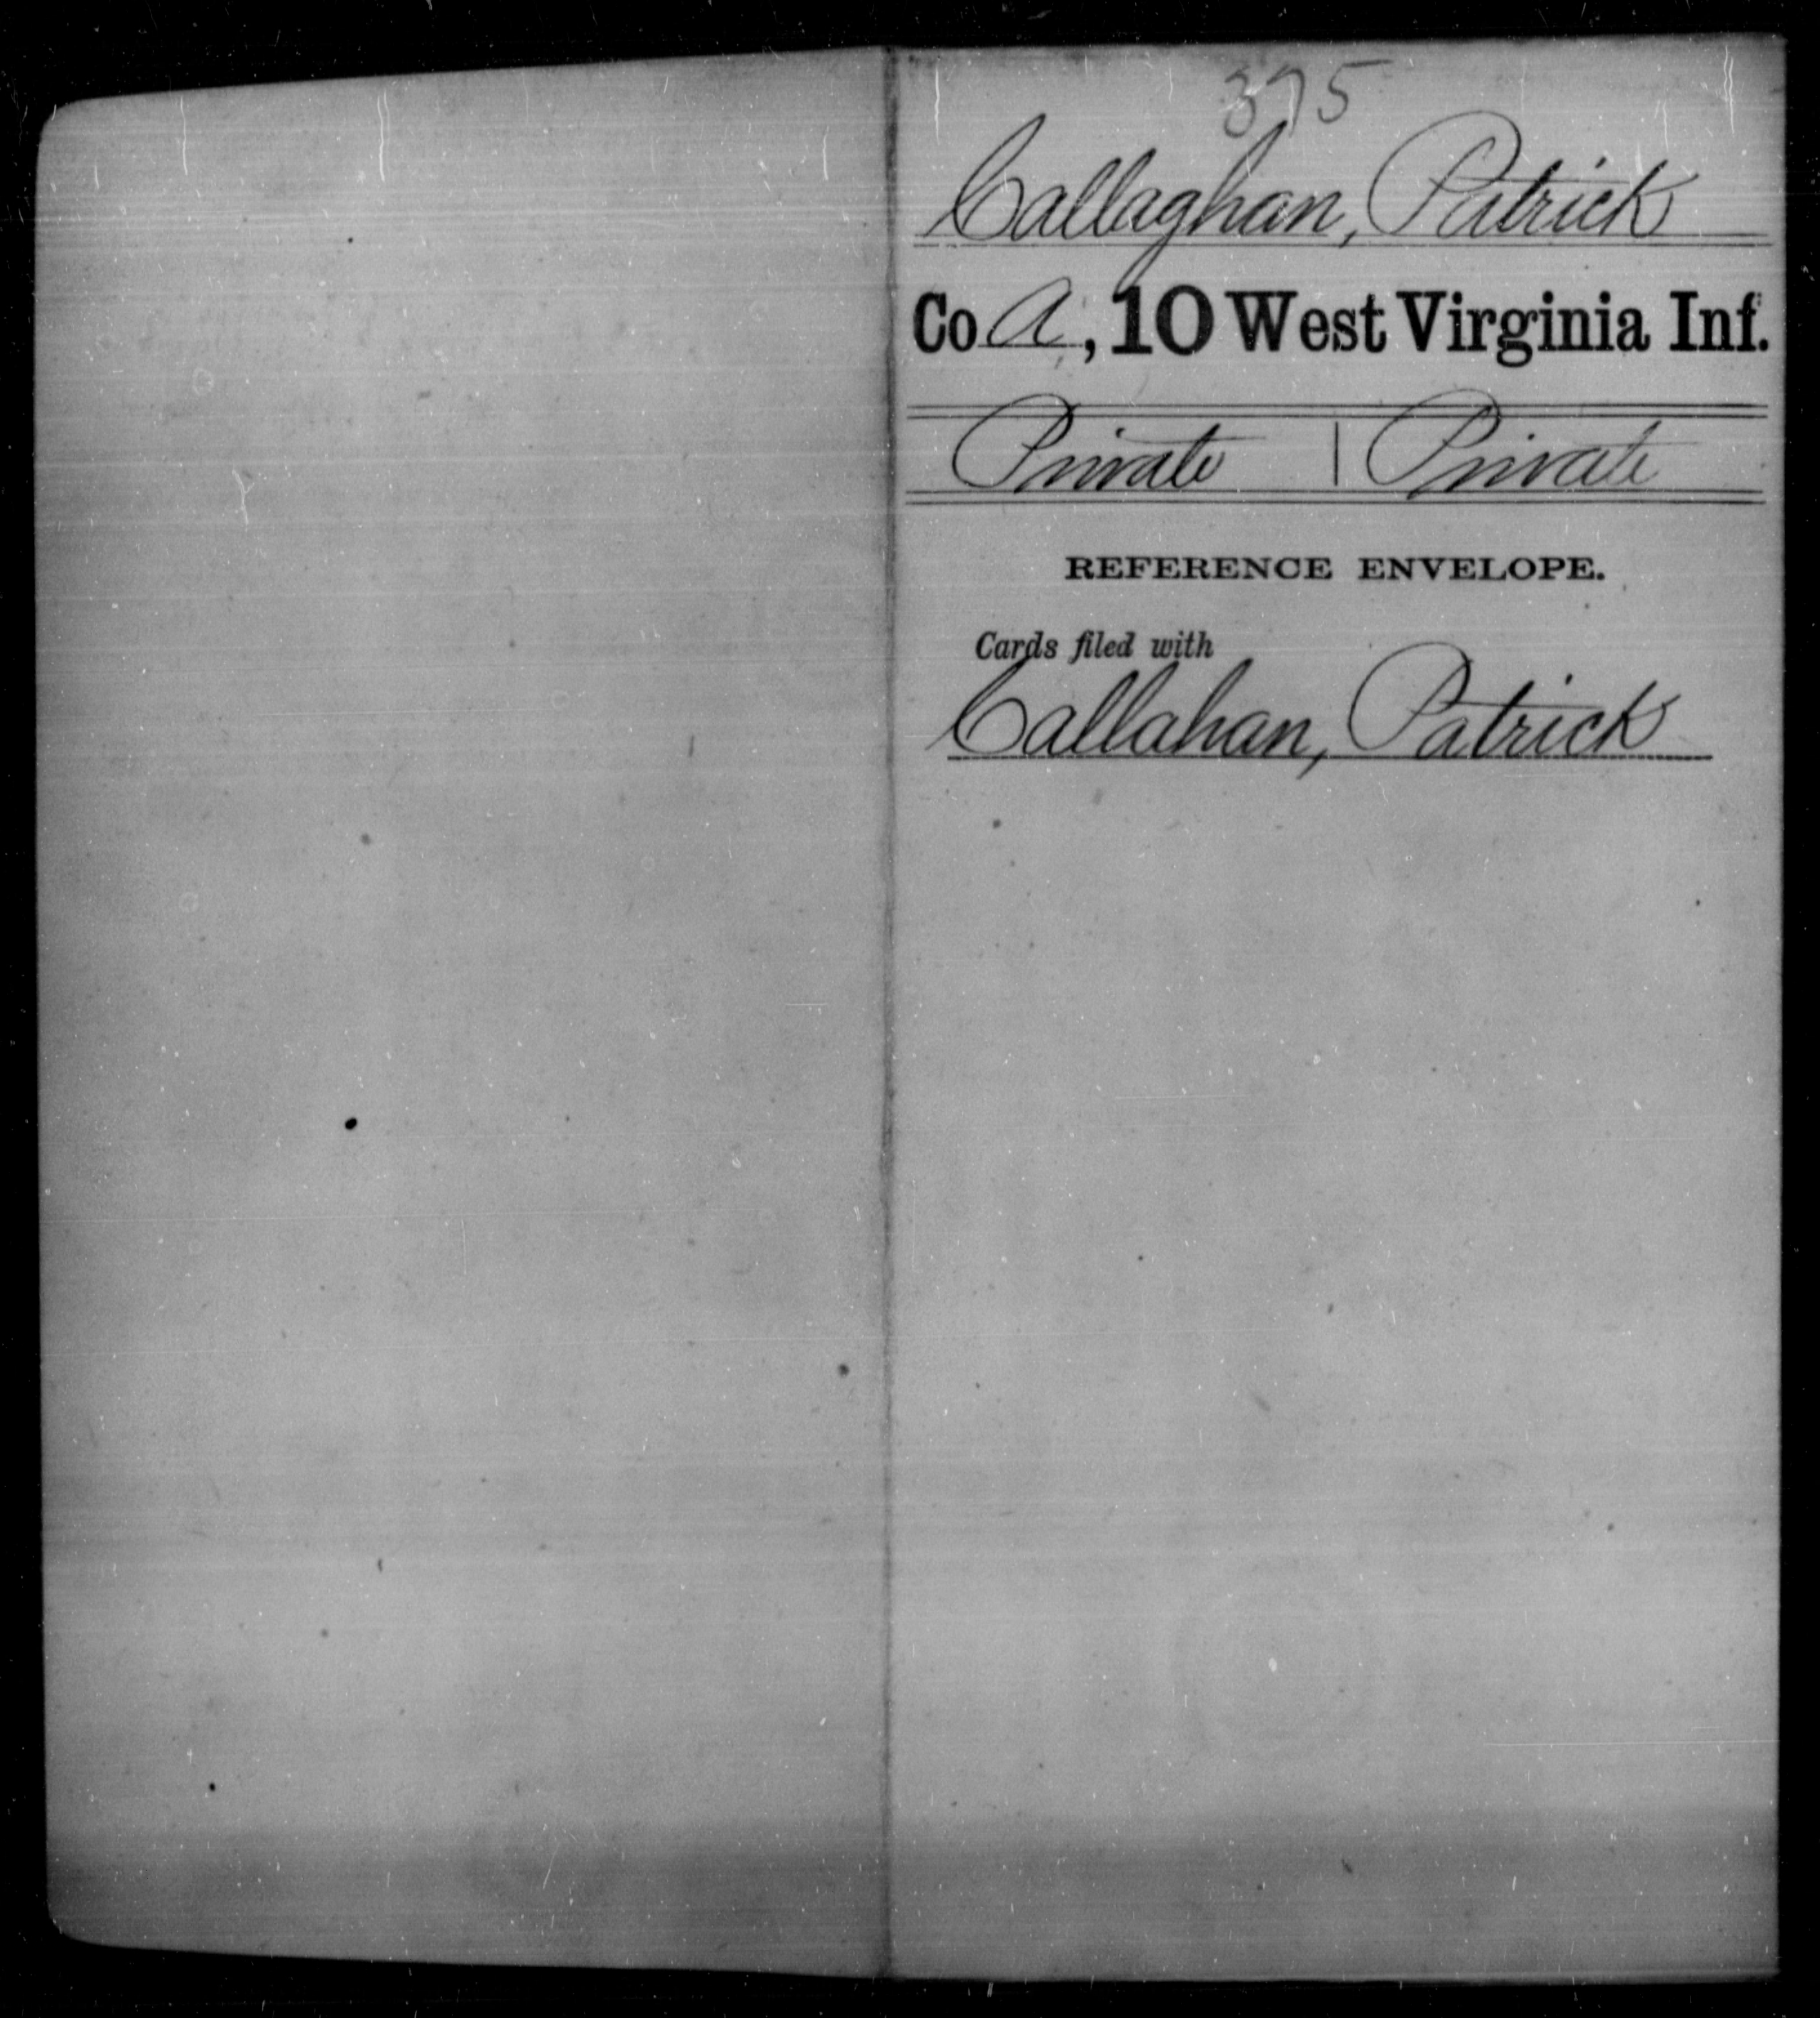 375
Callaghan, Patrick
Co A, 10 West Virginia Inf.
Private | Private
REFERENCE ENVELOPE.
Cards filed with
Callahan, Patrick